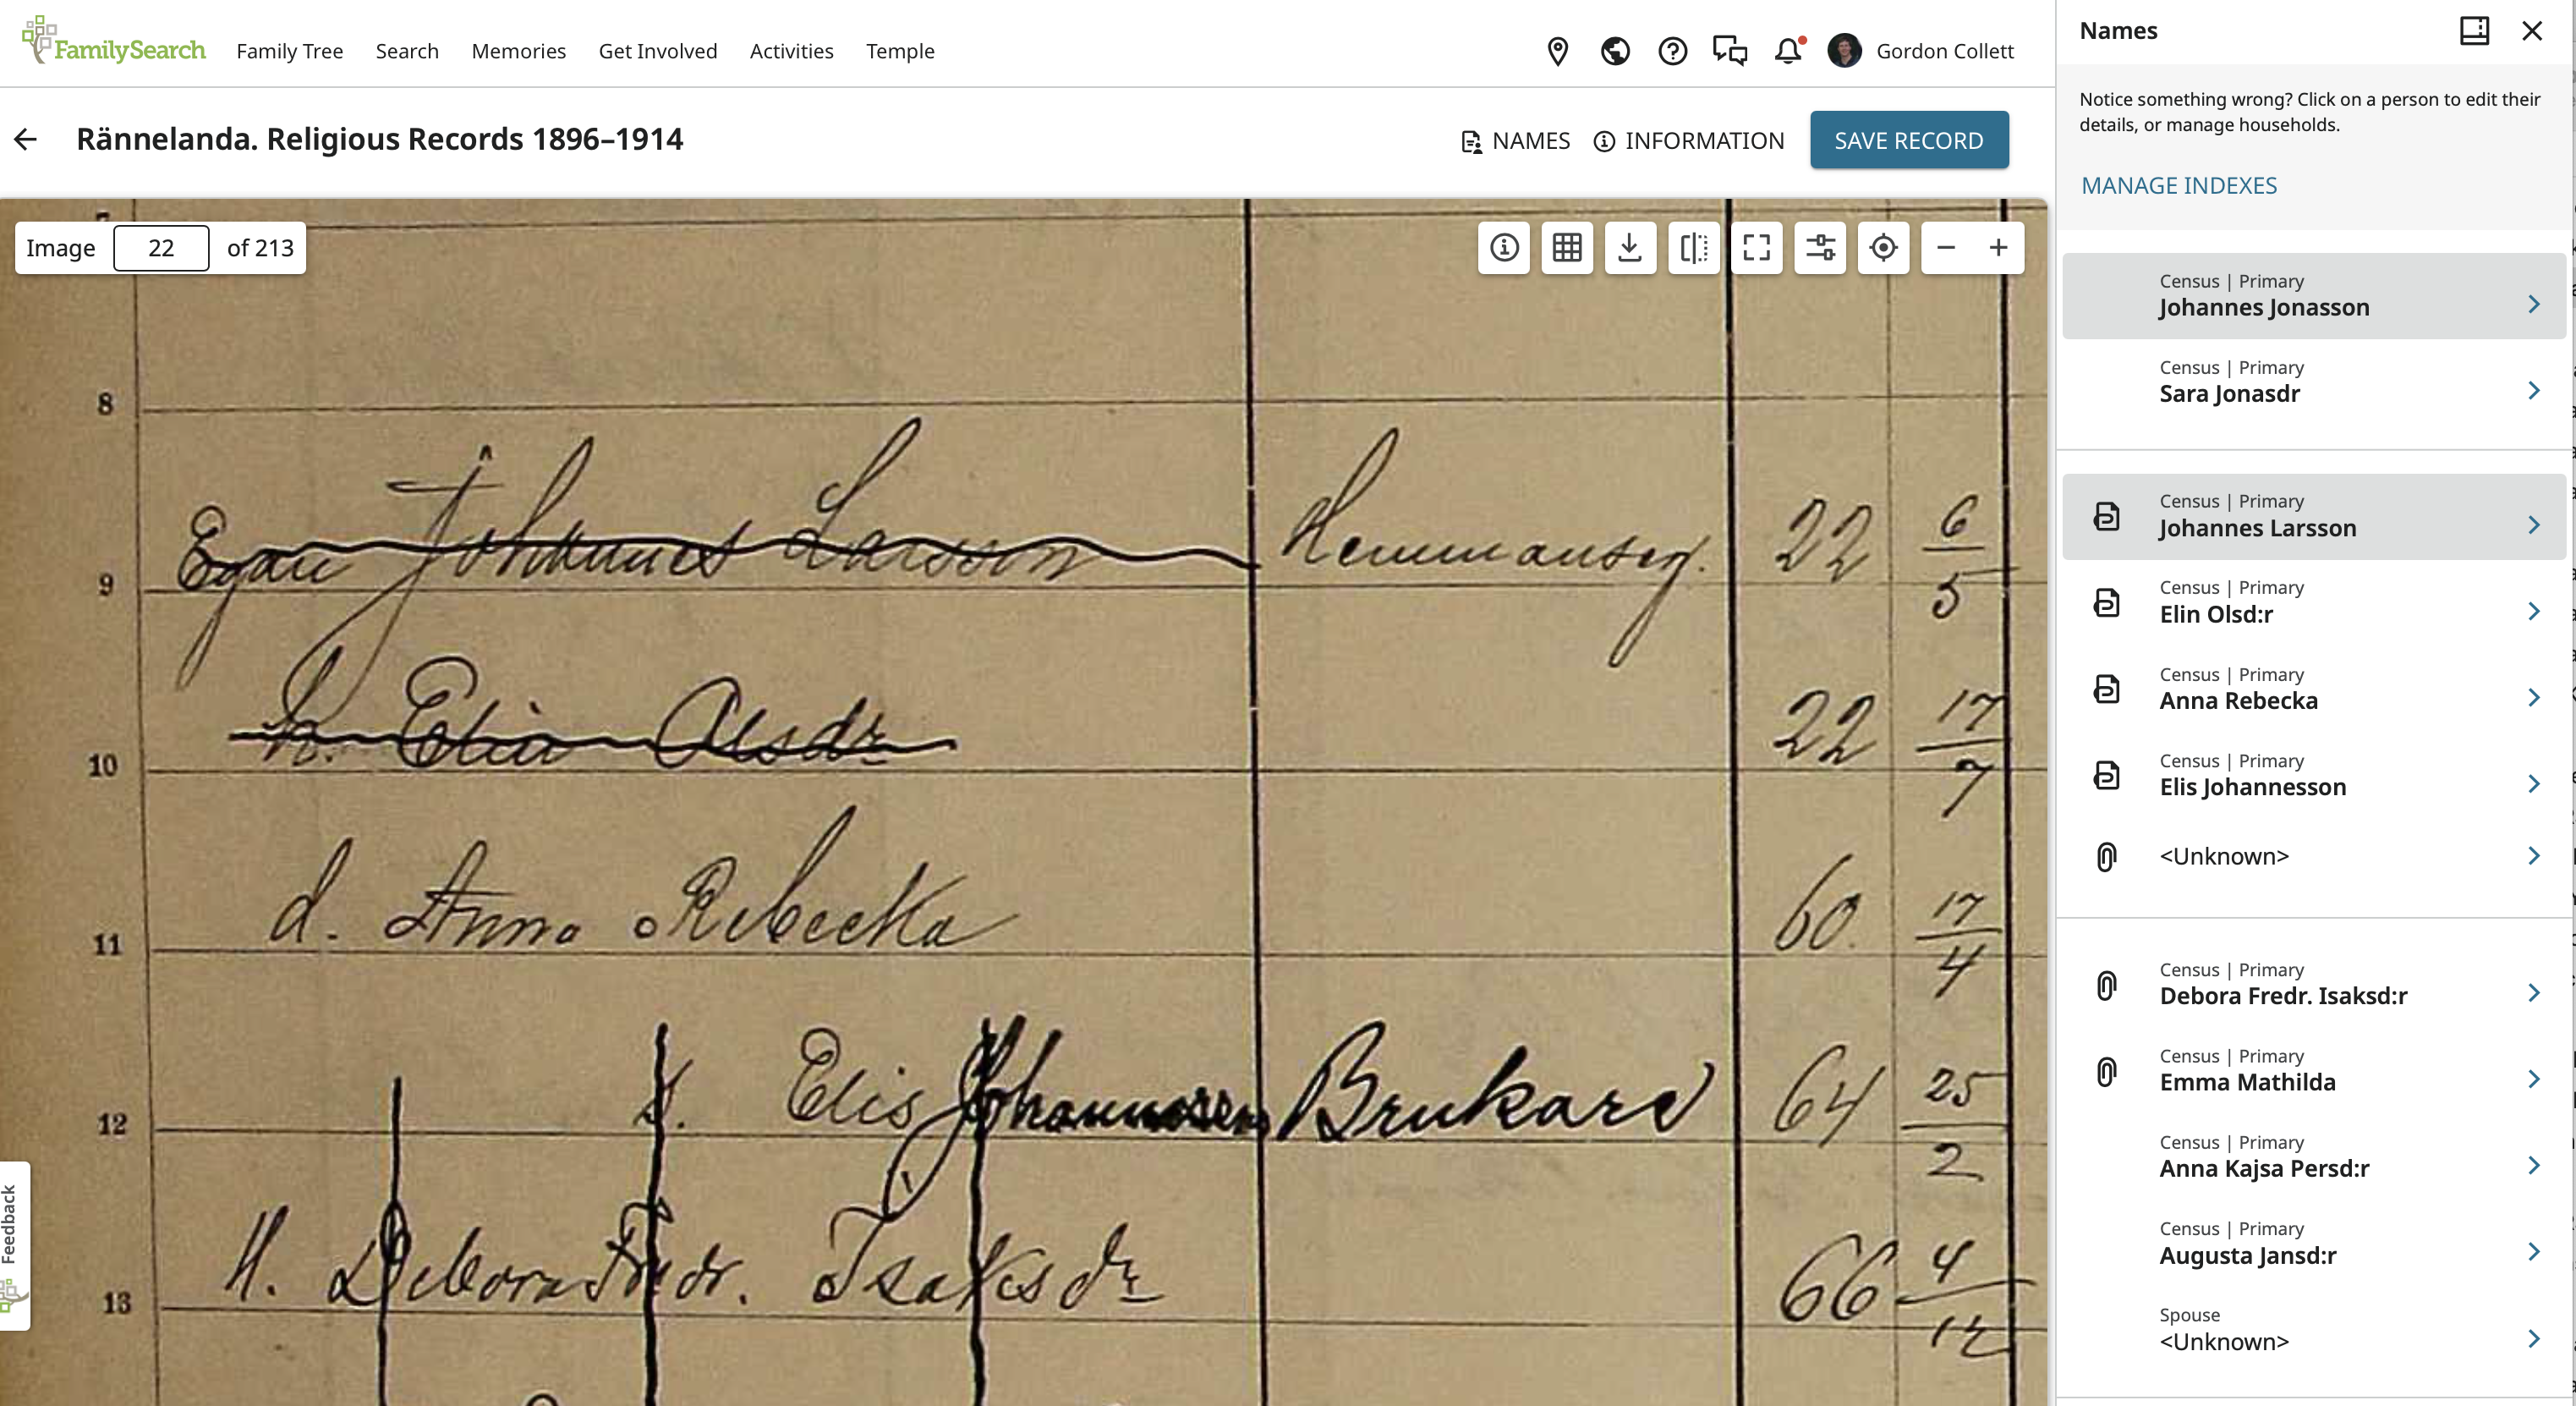 FamilySearch Family Tree Search Memories Get Involved Activities Temple Gordon Collett
Rännelanda. Religious Records 1896–1914 NAMES INFORMATION SAVE RECORD
Image 22 of 213
8
9 Egau Johannes Larsson Hemmanseg. 22 6/5
10 h. Elin Olsdr 22 17/7
11 d. Anna Rebecka 60. 17/4
12 S. Elis Johannesson Brukare 64 25/2
13 H. Debora Fredr. Isaksdr 66 4/12
Feedback
Names
Notice something wrong? Click on a person to edit their
details, or manage households.
MANAGE INDEXES
Census | Primary
Johannes Jonasson
Census | Primary
Sara Jonasdr
Census | Primary
Johannes Larsson
Census | Primary
Elin Olsd:r
Census | Primary
Anna Rebecka
Census | Primary
Elis Johannesson
<Unknown>
Census | Primary
Debora Fredr. Isaksd:r
Census | Primary
Emma Mathilda
Census | Primary
Anna Kajsa Persd:r
Census | Primary
Augusta Jansd:r
Spouse
<Unknown>